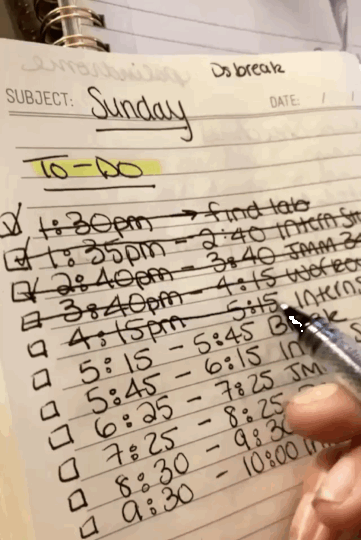 Ds break
SUBJECT: Sunday DATE: / /
To-Do
1:30pm → find lab
1:35pm - 2:40 Intern
2:40pm - 3:40 JMM
3:40pm - 4:15
4:15pm - 5:15 Interns
5:15 - 5:45 Break
5:45 - 6:15 In
6:25 - 7:25 JM
7:25 - 8:25
8:30 - 9:30
9:30 - 10:00 In